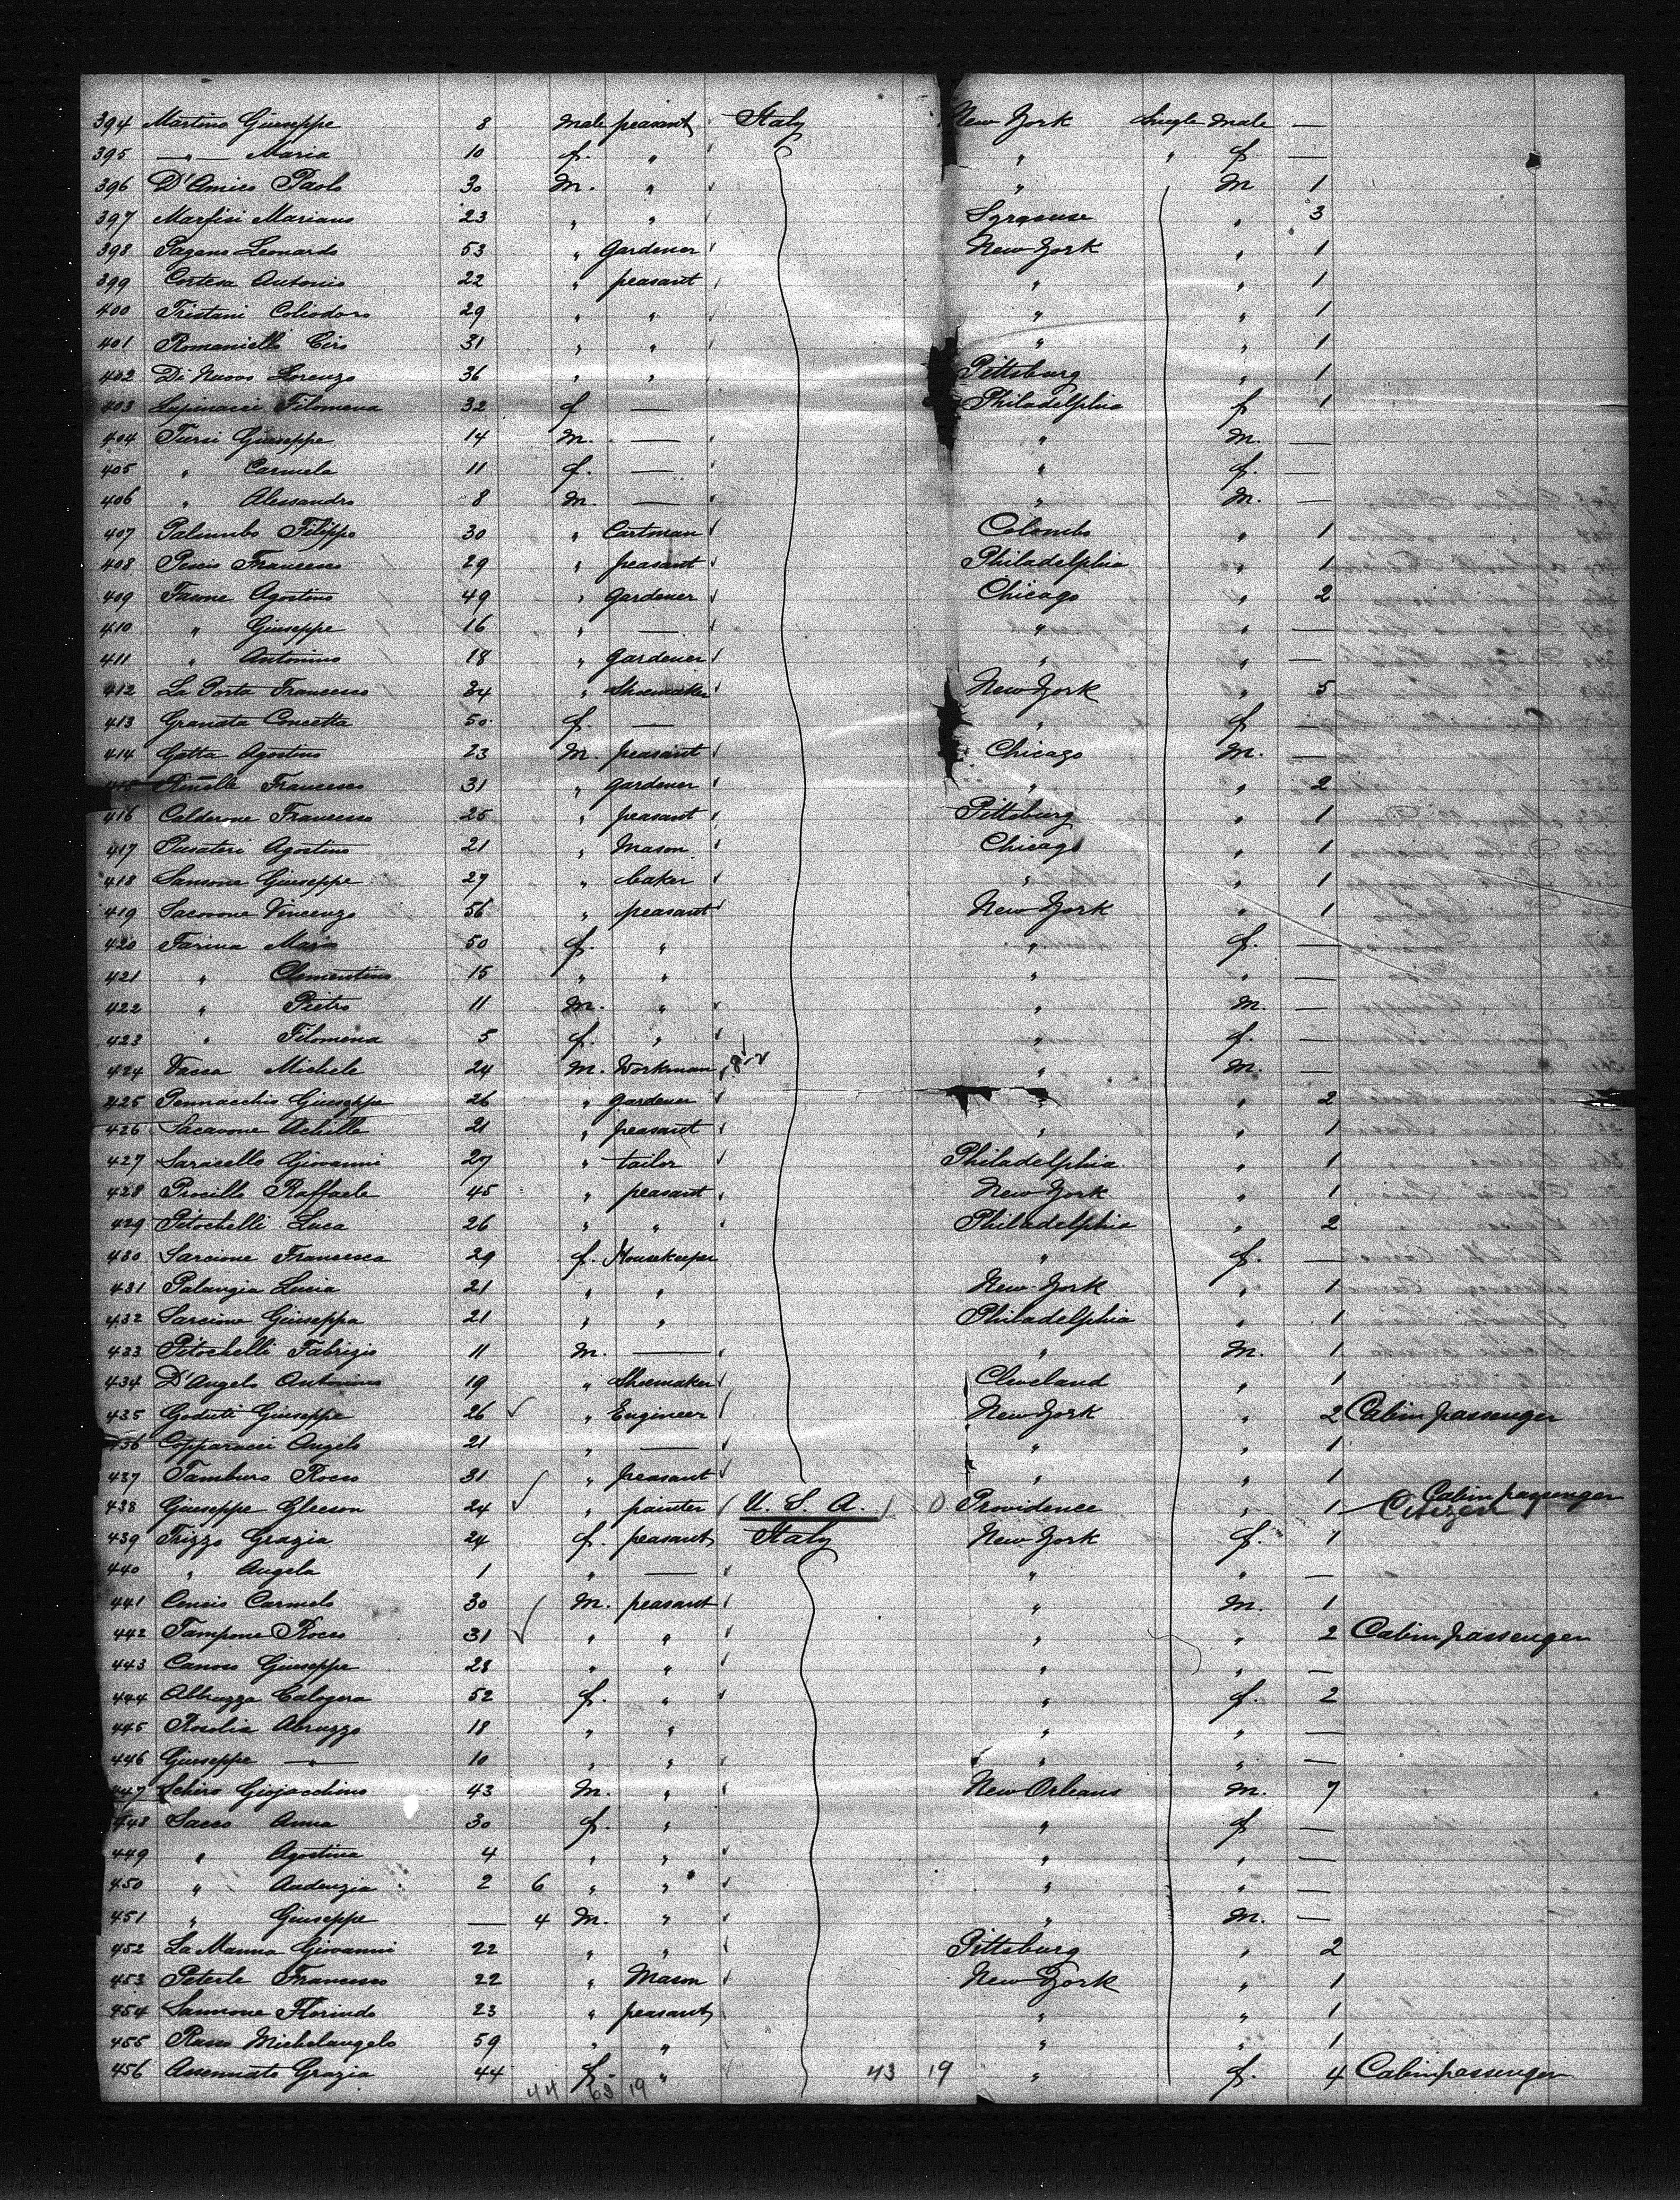 394 Martino Giuseppe 8 male peasant Italy New York Single male —
395 —"— Maria 10 f. " " " f —
396 D'Amico Paolo 30 m. " " m 1
397 Marfisi Mariano 23 " " Syracuse " 3
398 Pagano Leonardo 53 " gardener New York " 1
399 Cortesa Antonio 22 " peasant " " 1
400 Tristani Coliodoro 29 " " " " 1
401 Romaniello Ciro 31 " " " " 1
402 Di Nuovo Lorenzo 36 " " Pittsburg " 1
403 Lupinacci Filomena 32 f — Philadelphia f 1
404 Tursi Giuseppe 14 m. — " m. —
405 " Carmela 11 f. — " f. —
406 " Alessandro 8 m — " m. —
407 Palumbo Filippo 30 " Cartman Colombo " 1
408 Francesco 29 " peasant Philadelphia " 1
409 Agostino 49 " gardener Chicago " 2
410 " Giuseppe 16 " — " " —
411 " Antonino 18 " gardener " " —
412 La Porta Francesco 34 " Shoemaker New York " 5
413 Granata Concetta 50 f. — " f —
414 Gatta Agostino 23 m. peasant Chicago m. —
415 Francesco 31 " gardener " " 2
416 Calderone Francesco 25 " peasant Pittsburg " 1
417 Pusateri Agostino 21 " Mason Chicago " 1
418 Sansone Giuseppe 27 " baker " " 1
419 Sacovone Vincenzo 56 " peasant New York " 1
420 Farina Maria 50 f. " " f. —
421 " Clementina 15 " " " " —
422 " Pietro 11 m. " " m. —
423 " Filomena 5 f. " " f. —
424 Vassa Michele 24 m. Workman " m. —
425 Pennacchio Giuseppe 26 " gardener " " 2
426 Sacavone Achille 21 " peasant " " 1
427 Saracello Giovanni 27 " tailor Philadelphia " 1
428 Procillo Raffaele 45 " peasant New York " 1
429 Pitochelli Luca 26 " " Philadelphia " 2
430 Sarcione Francesca 29 f. Housekeeper " f. —
431 Palangia Lucia 21 " " New York " 1
432 Sarcione Giuseppa 21 " " Philadelphia " 1
433 Pitochelli Fabrizio 11 m. — " m. 1
434 D'Angelo Antonino 19 " Shoemaker Cleveland " 1
435 Goduti Giuseppe 26 " Engineer New York " 2 Cabin passenger
436 Copparucci Angelo 21 " — " " 1
437 Tamburo Rocco 31 " peasant " " 1
438 Giuseppe Gleeson 24 " painter U. S. A. 1 0 Providence " 1 Cabin passenger Citizen
439 Frizzo Grazia 24 f. peasant Italy New York f. 1
440 " Angela 1 " — " " —
441 Concio Carmelo 30 m. peasant " m. 1
442 Tampone Rocco 31 " " " " 2 Cabin passenger
443 Canoso Giuseppe 28 " " " " —
444 Abbruzzo Calogera 52 f. " " f. 2
445 Rosolia Abruzzo 18 " " " " —
446 Giuseppe —"— 10 " " " " —
447 Schiro Giojacchino 43 m. " New Orleans m. 7
448 Sacco Anna 30 f. " " f —
449 " Agostina 4 " " " " —
450 " Audenzia 2 6 " " " " —
451 " Giuseppe — 4 m. " " m. —
452 La Manna Giovanni 22 " " Pittsburg " 2
453 Peterle Francesco 22 " Mason New York " 1
454 Sannone Florindo 23 " peasant " " 1
455 Russo Michelangelo 59 " " " " 1
456 Assennato Grazia 44 f. " 43 19 " f. 4 Cabin passenger
44 63 19